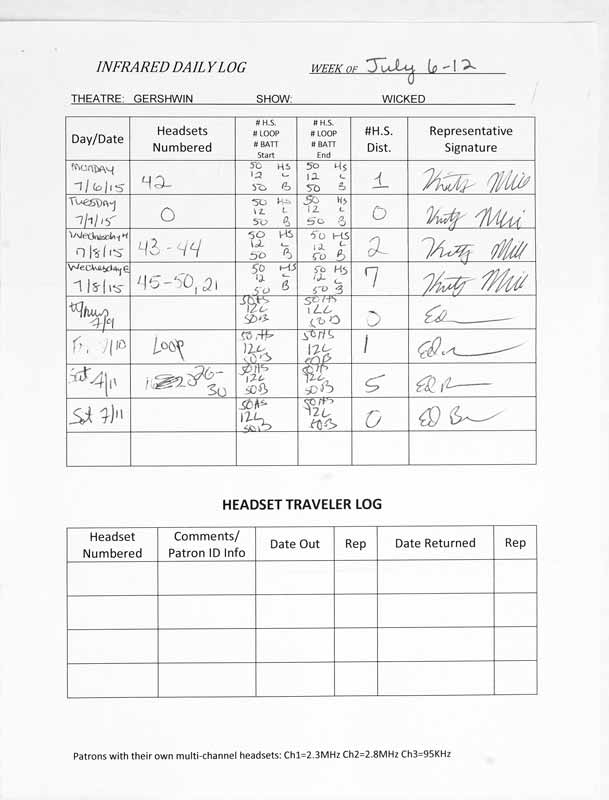 INFRARED DAILY LOG WEEK OF July 6-12
THEATRE: GERSHWIN SHOW: WICKED
Day/Date Headsets Numbered # H.S. # LOOP # BATT Start # H.S. # LOOP # BATT End #H.S. Dist. Representative Signature
MONDAY 7/6/15 42 50 HS 12 L 50 B 50 HS 12 L 50 B 1
TUESDAY 7/7/15 0 50 HS 12 L 50 B 50 HS 12 L 50 B 0
Wednesday M 7/8/15 43-44 50 HS 12 L 50 B 50 HS 12 L 50 B 2
Wednesday E 7/8/15 45-50, 21 50 HS 12 L 50 B 50 HS 12 L 50 B 7
Thurs 7/9 50HS 12L 50B 50HS 12L 50B 0 Ed
Fri 7/10 LOOP 50HS 12L 50B 50HS 12L 50B 1 Ed
Sat 7/11 26-30 50HS 12L 50B 50HS 12L 50B 5 Ed
Sat 7/11 50HS 12L 50B 50HS 12L 50B 0 Ed
HEADSET TRAVELER LOG
Headset Numbered Comments/ Patron ID Info Date Out Rep Date Returned Rep
Patrons with their own multi-channel headsets: Ch1=2.3MHz Ch2=2.8MHz Ch3=95KHz